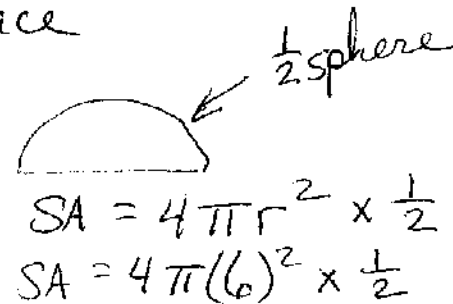 ½ sphere
SA = 4πr² × ½
SA = 4π(6)² × ½